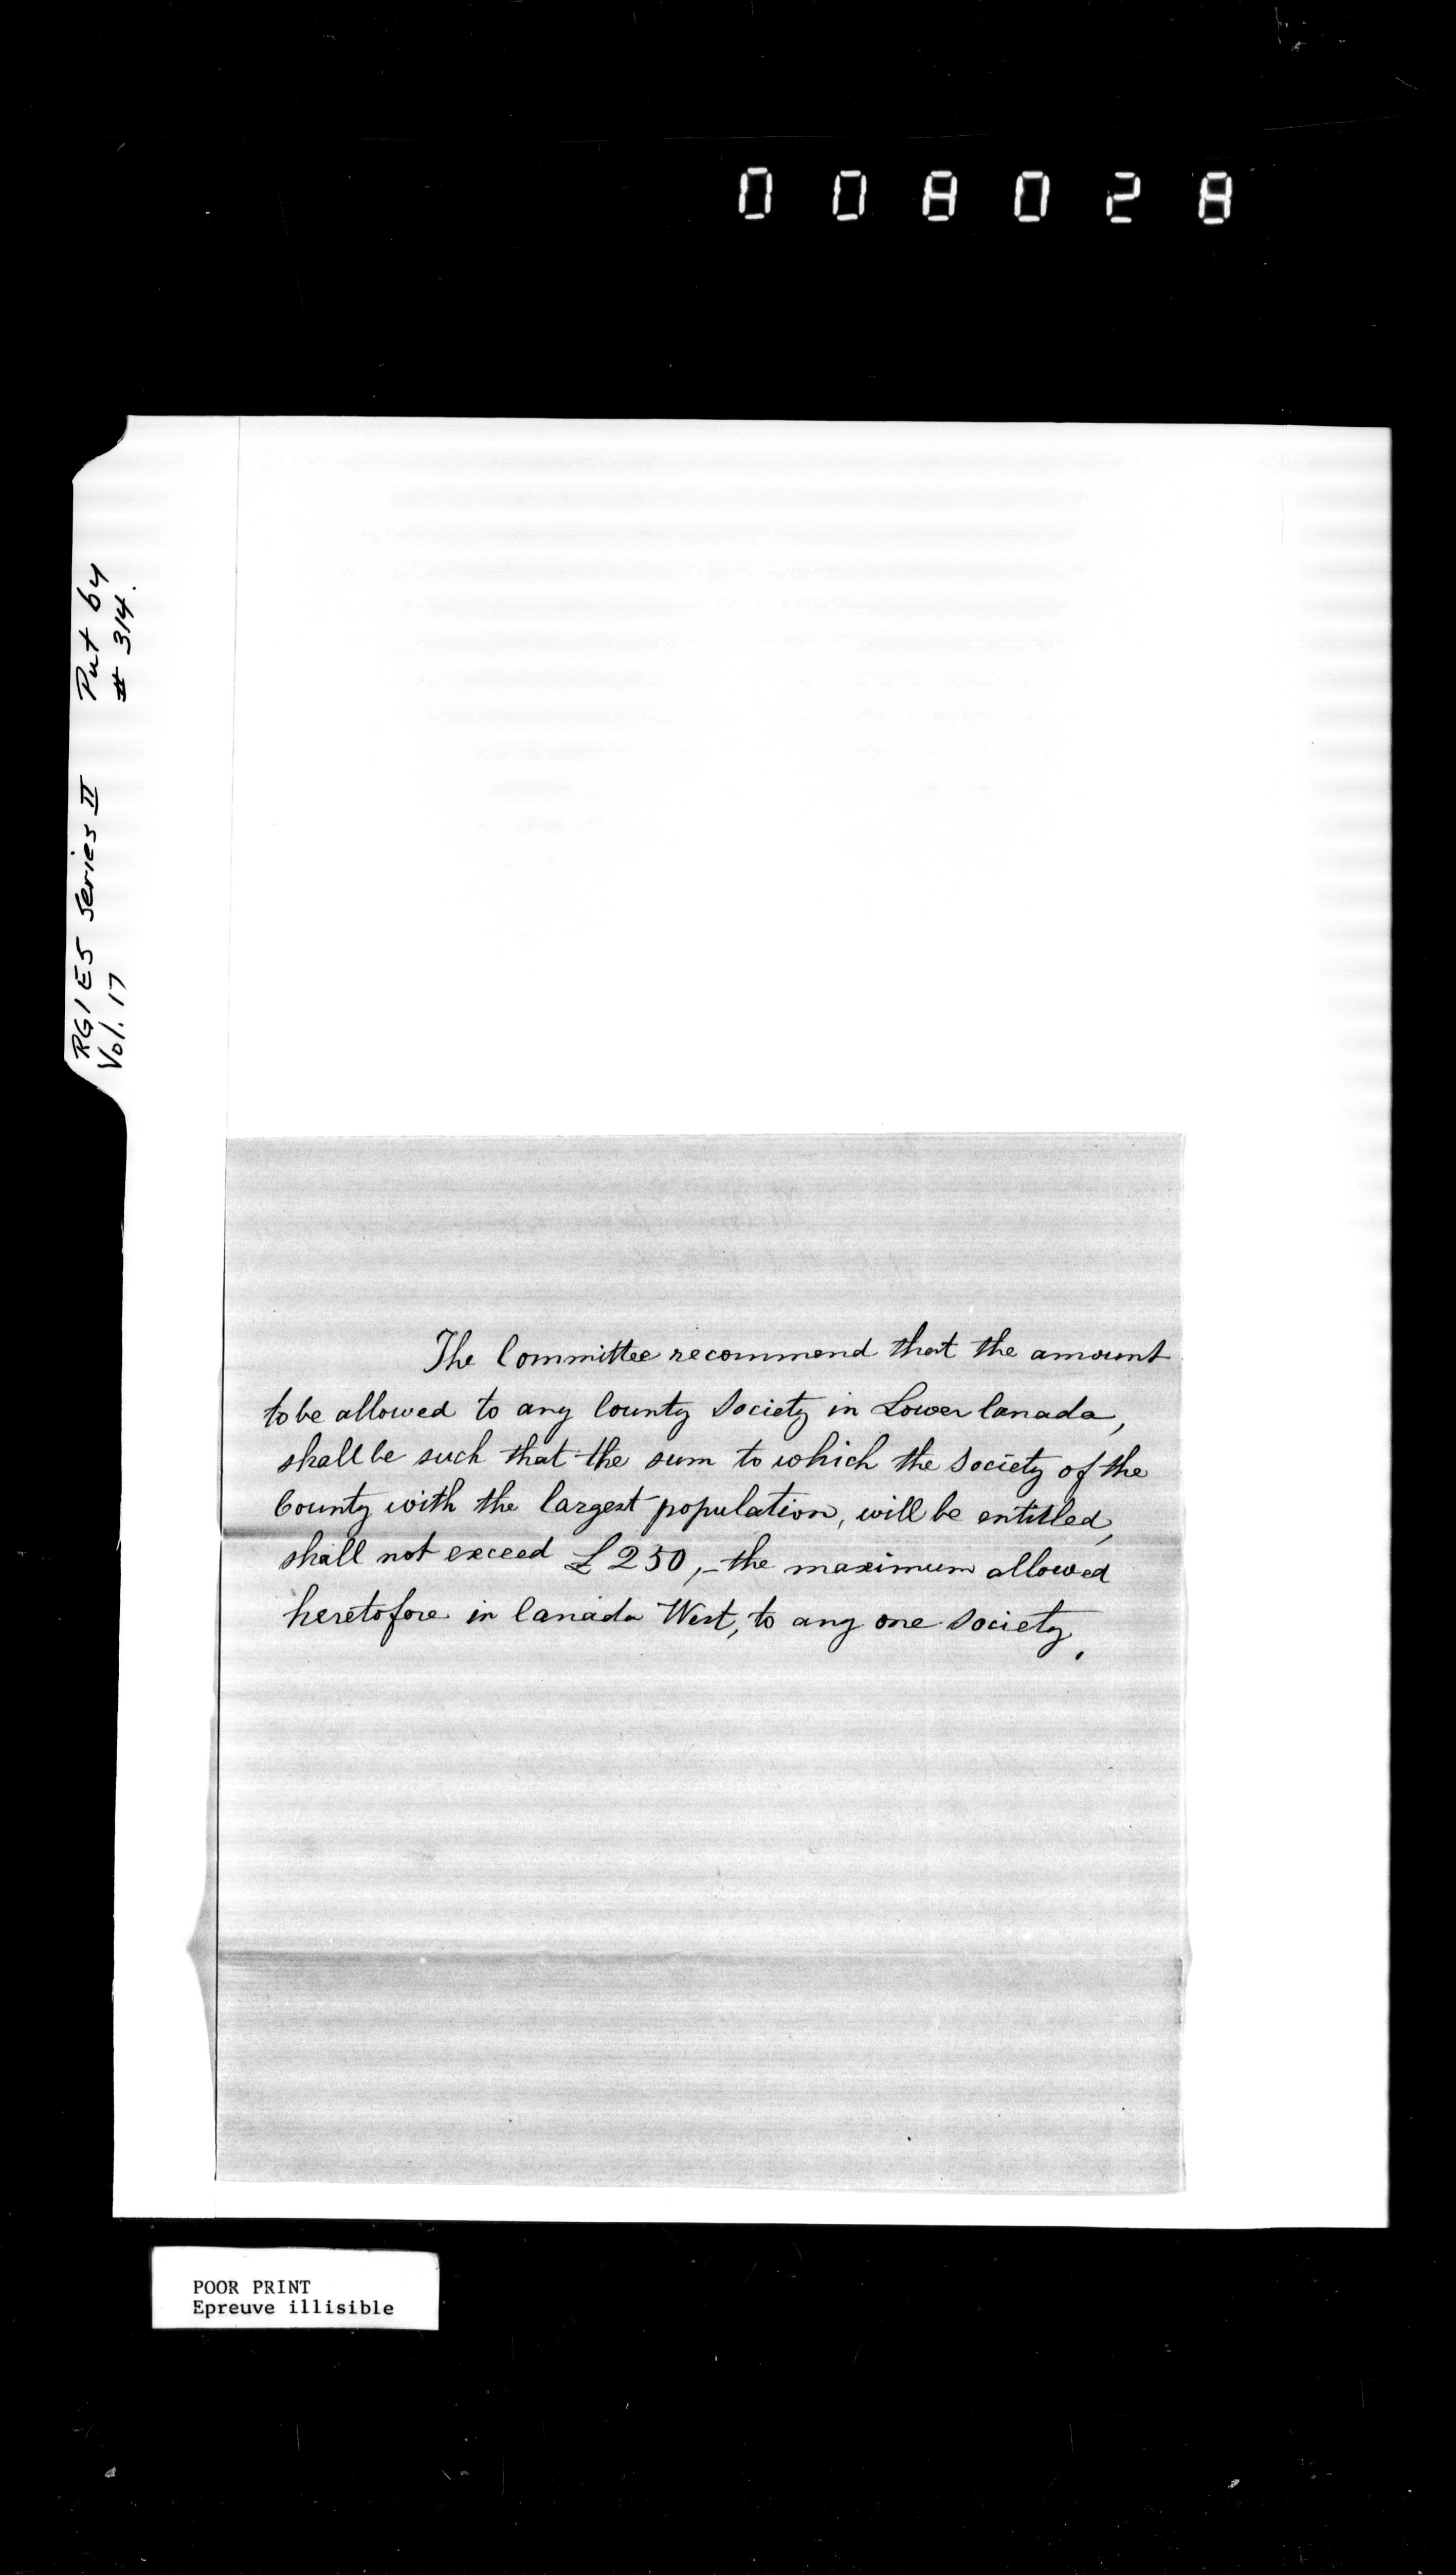 008028
RG1 E5 Series II Put by
Vol. 17 # 314.
The Committee recommend that the amount
to be allowed to any County Society in Lower Canada,
shall be such that the sum to which the Society of the
County with the largest population, will be entitled,
shall not exceed £250,- the maximum allowed
heretofore in Canada West, to any one Society.
POOR PRINT
Epreuve illisible